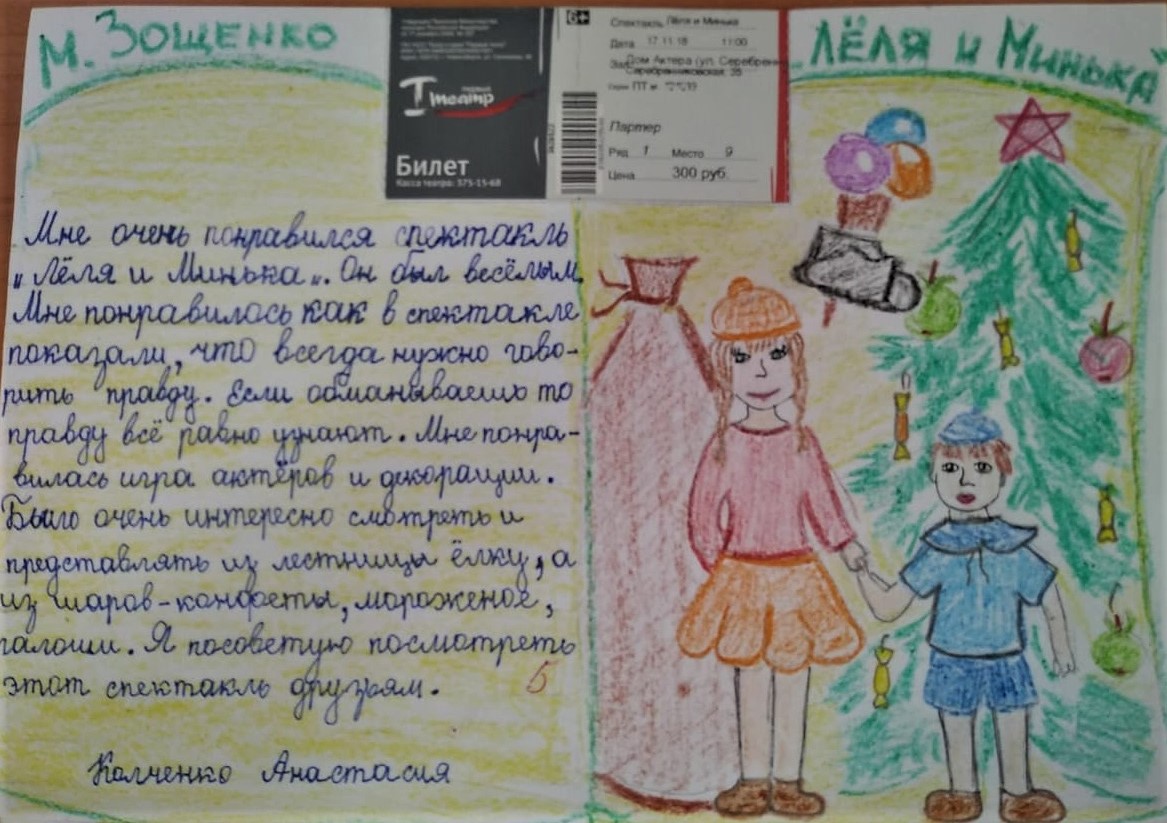 М. ЗОЩЕНКО
„ЛЁЛЯ и Минька"
1 первый
театр
Билет
Касса театра: 375-15-68
6+
Спектакль Лёля и Минька
Дата 17.11.18 11:00
Дом Актера (ул. Серебренн
Серебренниковская, 35
Партер
Ряд 1 Место 9
Цена 300 руб.
Мне очень понравился спектакль
„Лёля и Минька„. Он был весёлым.
Мне понравилось как в спектакле
показали, что всегда нужно гово-
рить правду. Если обманываешь то
правду всё равно узнают. Мне понра-
вилась игра актёров и декорации.
Было очень интересно смотреть и
представлять из лестницы ёлку, а
из шаров-конфеты, мороженое,
галоши. Я посоветую посмотреть
этот спектакль друзьям. 5
Колченко Анастасия